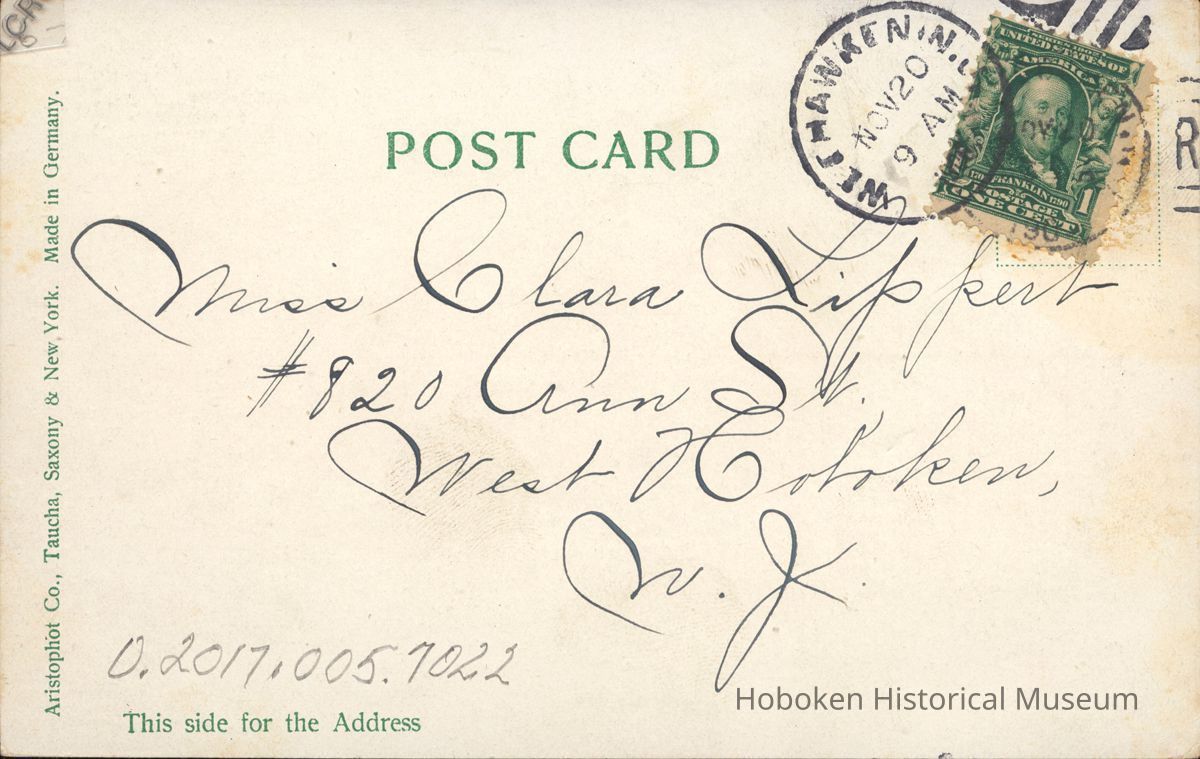 LCR
WEEHAWKEN, N.J.
NOV 20
9 AM
SERIES 1902
UNITED STATES OF
AMERICA
1706 FRANKLIN 1790
POSTAGE
ONE CENT
1
R
POST CARD
Miss Clara Lippert
#820 Ann St.
West Hoboken,
N. J.
Aristophot Co., Taucha, Saxony & New York. Made in Germany.
0.2017.005.7022
This side for the Address
Hoboken Historical Museum